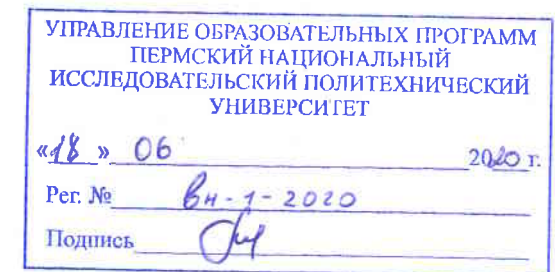 УПРАВЛЕНИЕ ОБРАЗОВАТЕЛЬНЫХ ПРОГРАММ
ПЕРМСКИЙ НАЦИОНАЛЬНЫЙ
ИССЛЕДОВАТЕЛЬСКИЙ ПОЛИТЕХНИЧЕСКИЙ
УНИВЕРСИТЕТ
«18» 06 2020 г.
Рег. № вн-1-2020
Подпись